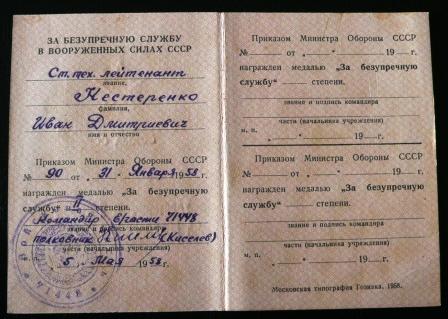 ЗА БЕЗУПРЕЧНУЮ СЛУЖБУ
В ВООРУЖЕННЫХ СИЛАХ СССР
Ст. тех. лейтенант
звание,
Нестеренко
фамилия,
Иван Дмитриевич
имя и отчество
Приказом Министра Обороны СССР
№ 90 от „31" Января 1958 г.
награжден медалью „За безупречную
службу" II степени.
Командир в/части 71448
звание и подпись командира
полковник (Киселев)
части (начальника учреждения)
5 „ Мая 1958 г.
71448
Приказом Министра Обороны СССР
№ от „ " 19 г.
награжден медалью „За безупречную
службу" степени.
звание и подпись командира
части (начальника учреждения)
м. п. „ " 19 г.
Приказом Министра Обороны СССР
№ от „ " 19 г.
награжден медалью „За безупречную
службу" степени.
звание и подпись командира
части (начальника учреждения)
м. п. „ " 19 г.
Московская типография Гознака. 1958.